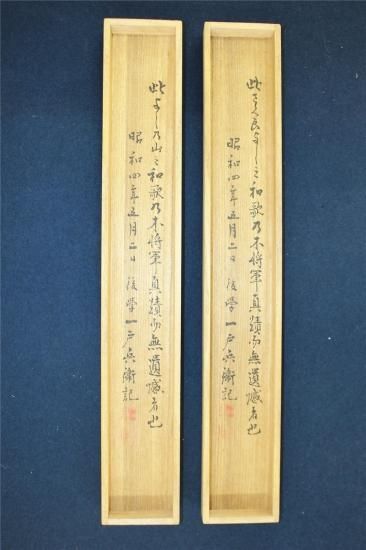 此さくら良よし之和歌乃木将軍真蹟而無遺憾者也
昭和四年五月二日 後学一戸兵衛記
此よしの山之和歌乃木将軍真蹟而無遺憾者也
昭和四年五月二日 後学一戸兵衛記